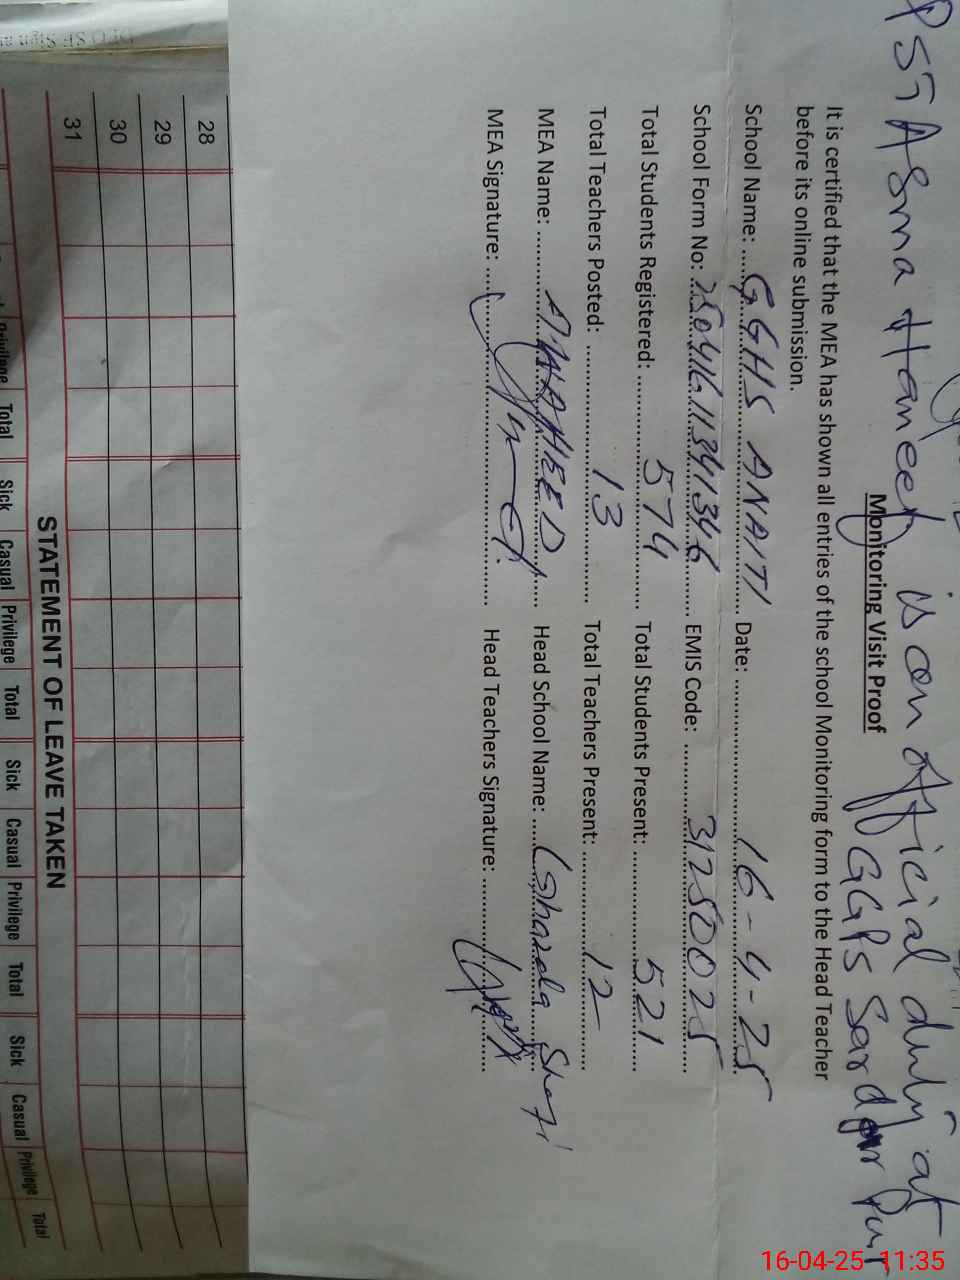 PST Asma Haneef is on official duty at
GGPS Sardar Pur
Monitoring Visit Proof
It is certified that the MEA has shown all entries of the school Monitoring form to the Head Teacher
before its online submission.
School Name: GGHS ANAITI Date: 16-4-25
School Form No: 25041611341346 EMIS Code: 31250025
Total Students Registered: 574 Total Students Present: 521
Total Teachers Posted: 13 Total Teachers Present: 12
MEA Name: Head School Name: Ghazala
MEA Signature: Head Teachers Signature:
28
29
30
31
STATEMENT OF LEAVE TAKEN
Privilege Total Sick Casual Privilege Total Sick Casual Privilege Total Sick Casual Privilege Total
16-04-25 11:35